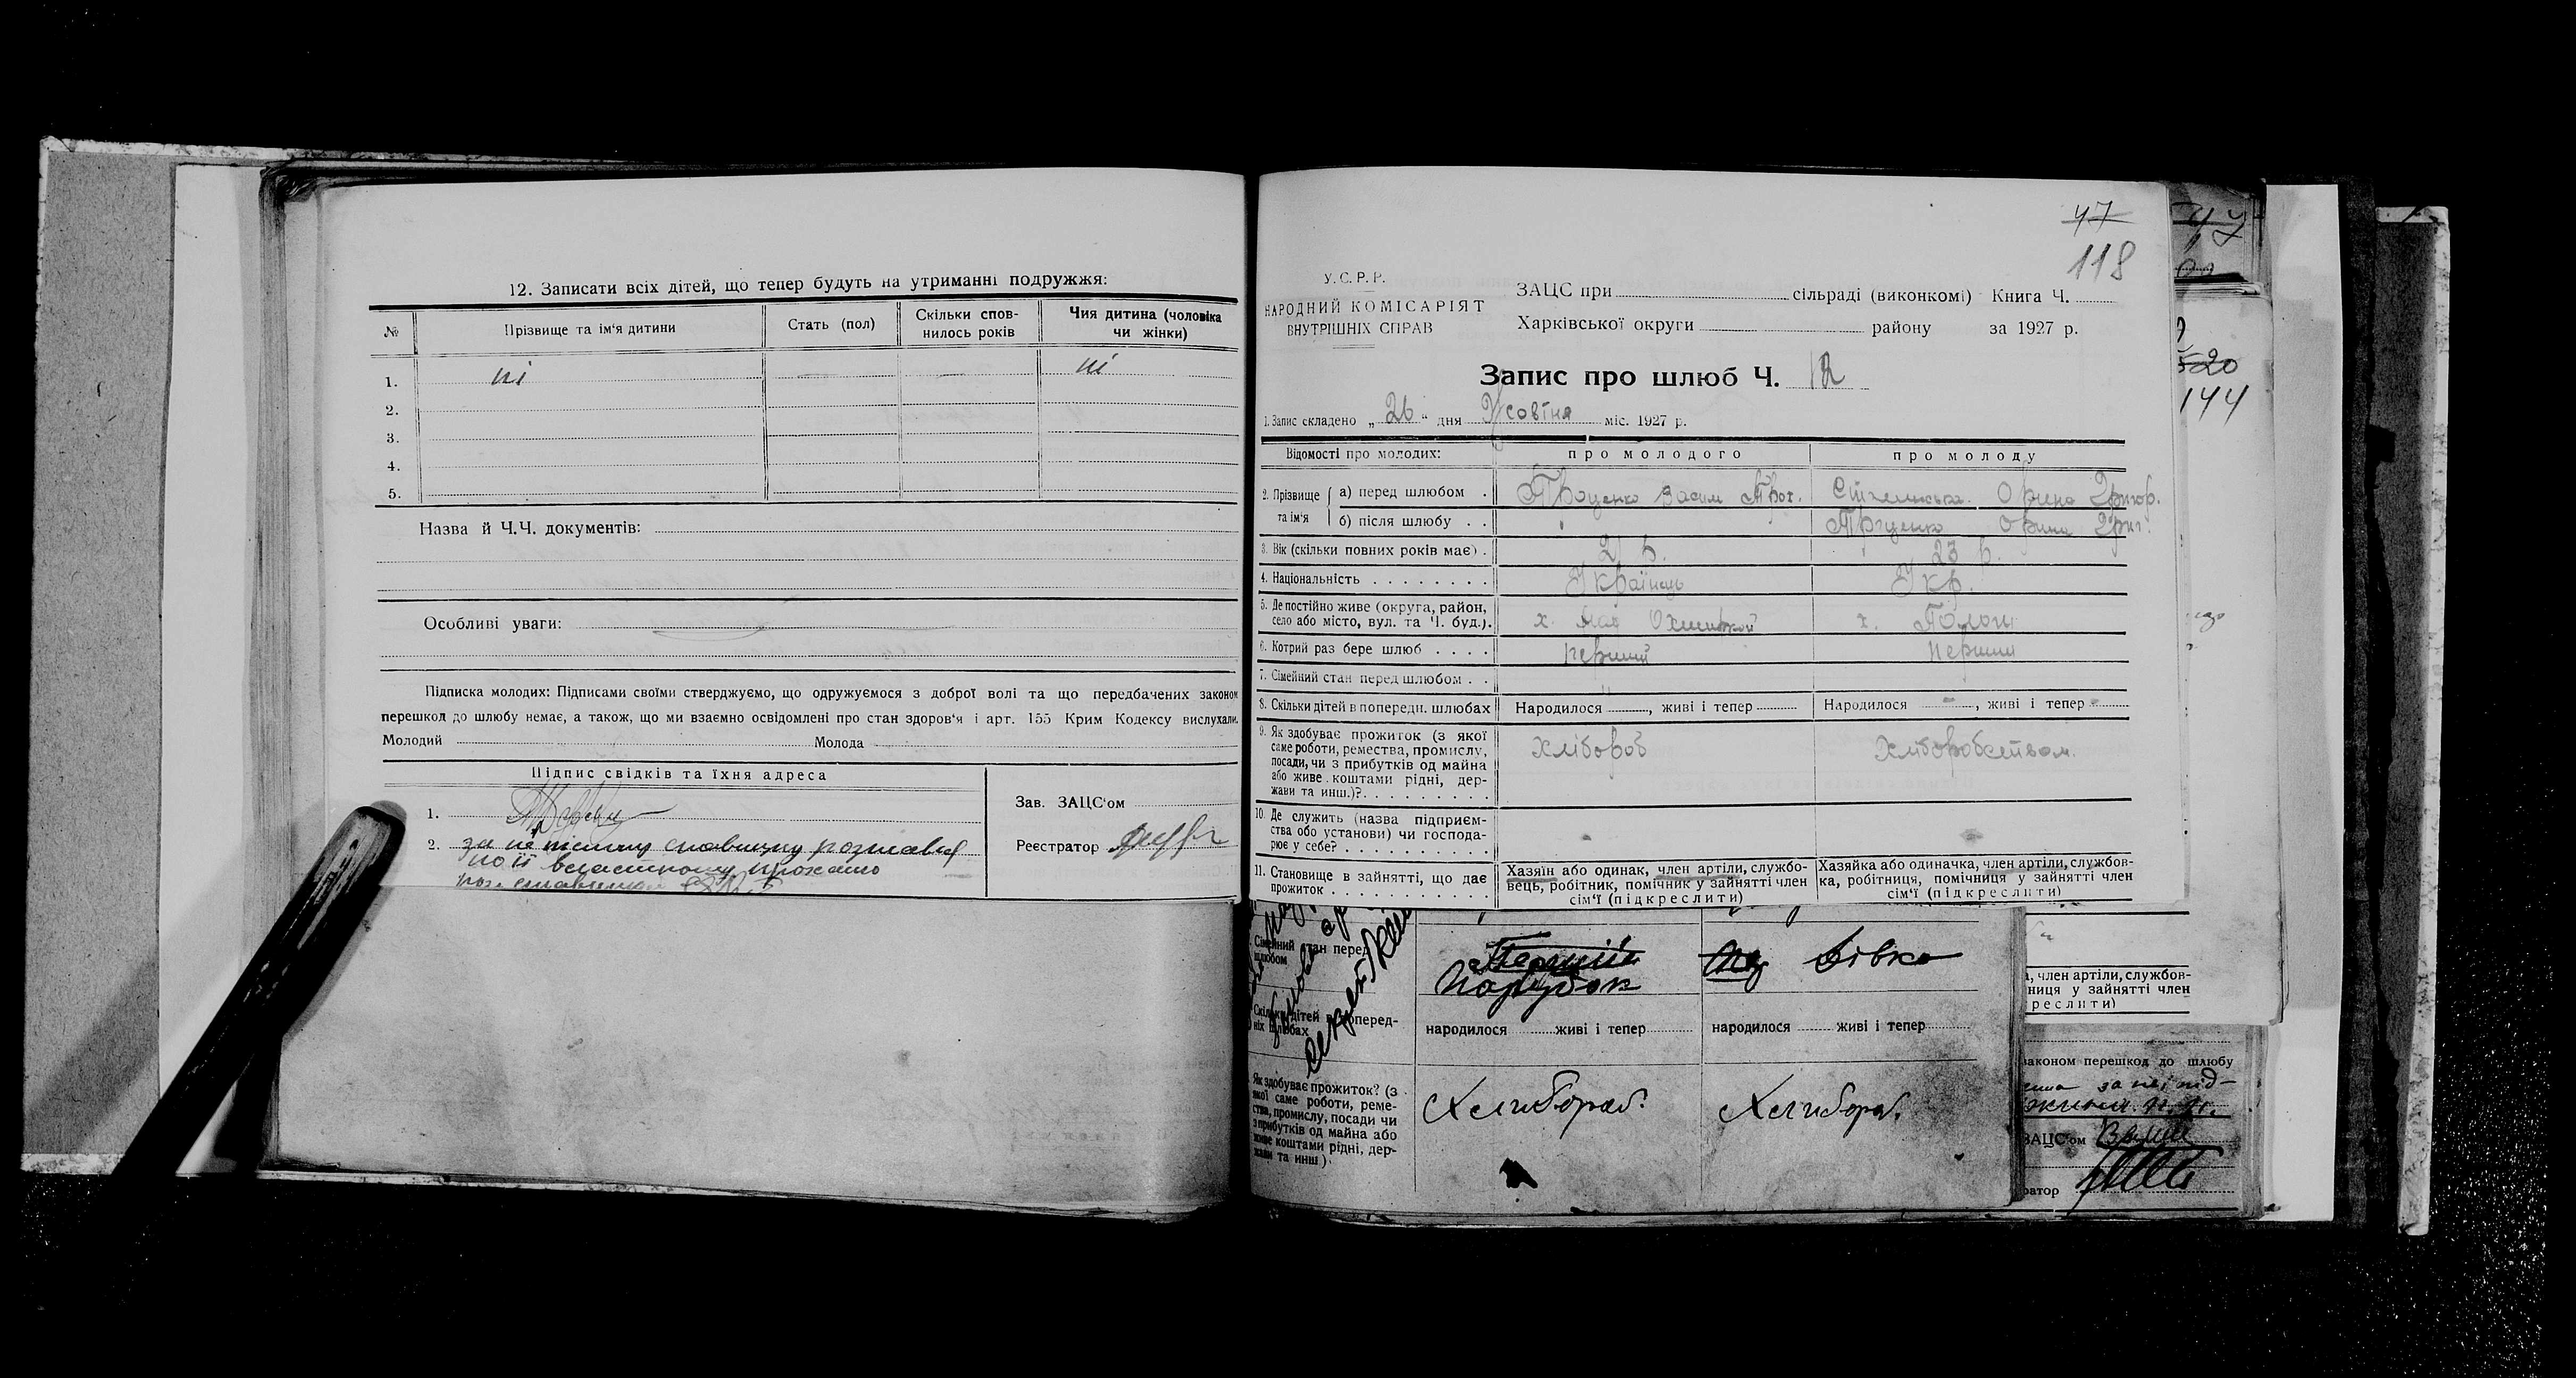 12. Записати всіх дітей, що тепер будуть на утриманні подружжя:
№ Прізвище та ім'я дитини Стать (пол) Скільки спов-нилось років Чия дитина (чоловіка чи жінки)
1. ні ні
2.
3.
4.
5.
Назва й Ч.Ч. документів:
Особливі уваги:
Підписка молодих: Підписами своїми стверджуємо, що одружуємося з доброї волі та що передбачених законом
перешкод до шлюбу немає, а також, що ми взаємно освідомлені про стан здоров'я і арт. 155 Крим Кодексу вислухали.
Молодий Молода
Підпис свідків та їхня адреса
1.
Зав. ЗАЦС'ом
2. за
Реєстратор
по її власному
47
118
У.С.Р.Р.
НАРОДНИЙ КОМІСАРІЯТ
ВНУТРІШНІХ СПРАВ
ЗАЦС при сільраді (виконкомі) Книга Ч.
Харківської округи району за 1927 р.
Запис про шлюб Ч. 12
1. Запис складено „26“ дня Жовтня міс. 1927 р.
Відомості про молодих: про молодого про молоду
2. Прізвище та ім'я
а) перед шлюбом Орина Григор.
б) після шлюбу Орина Григ.
3. Вік (скільки повних років має) 21 р. 23 р.
4. Національність Українець Укр.
5. Де постійно живе (округа, район,
село або місто, вул. та Ч. буд.). х. х.
6. Котрий раз бере шлюб перший перший
7. Сімейний стан перед шлюбом
8. Скільки дітей в попередн. шлюбах Народилося, живі і тепер Народилося, живі і тепер
9. Як здобуває прожиток (з якої
саме роботи, ремества, промислу,
посади, чи з прибутків од майна
або живе коштами рідні, дер-
жави та инш.)?
Хлібороб Хліборобством.
10. Де служить (назва підприєм-
ства або установи) чи господа-
рює у себе?
11. Становище в зайнятті, що дає
прожиток
Хазяїн або одинак, член артіли, службо-
вець, робітник, помічник у зайнятті член
сім'ї (підкреслити)
Хазяйка або одиначка, член артіли, службов-
ка, робітниця, помічниця у зайнятті член
сім'ї (підкреслити)
Сімейний стан перед
шлюбом
Перший
Парубок
Дівка
Скільки дітей в поперед-
ніх шлюбах
народилося живі і тепер народилося живі і тепер
Як здобуває прожиток? (з
якої саме роботи, реме-
ства, промислу, посади чи
з прибутків од майна або
живе коштами рідні, дер-
жави та инш).
Хлибороб. Хлибороб.
520
144
, член артіли, службов-
ниця у зайнятті член
реслити)
законом перешкод до шлюбу
ЗАЦС'ом
ратор